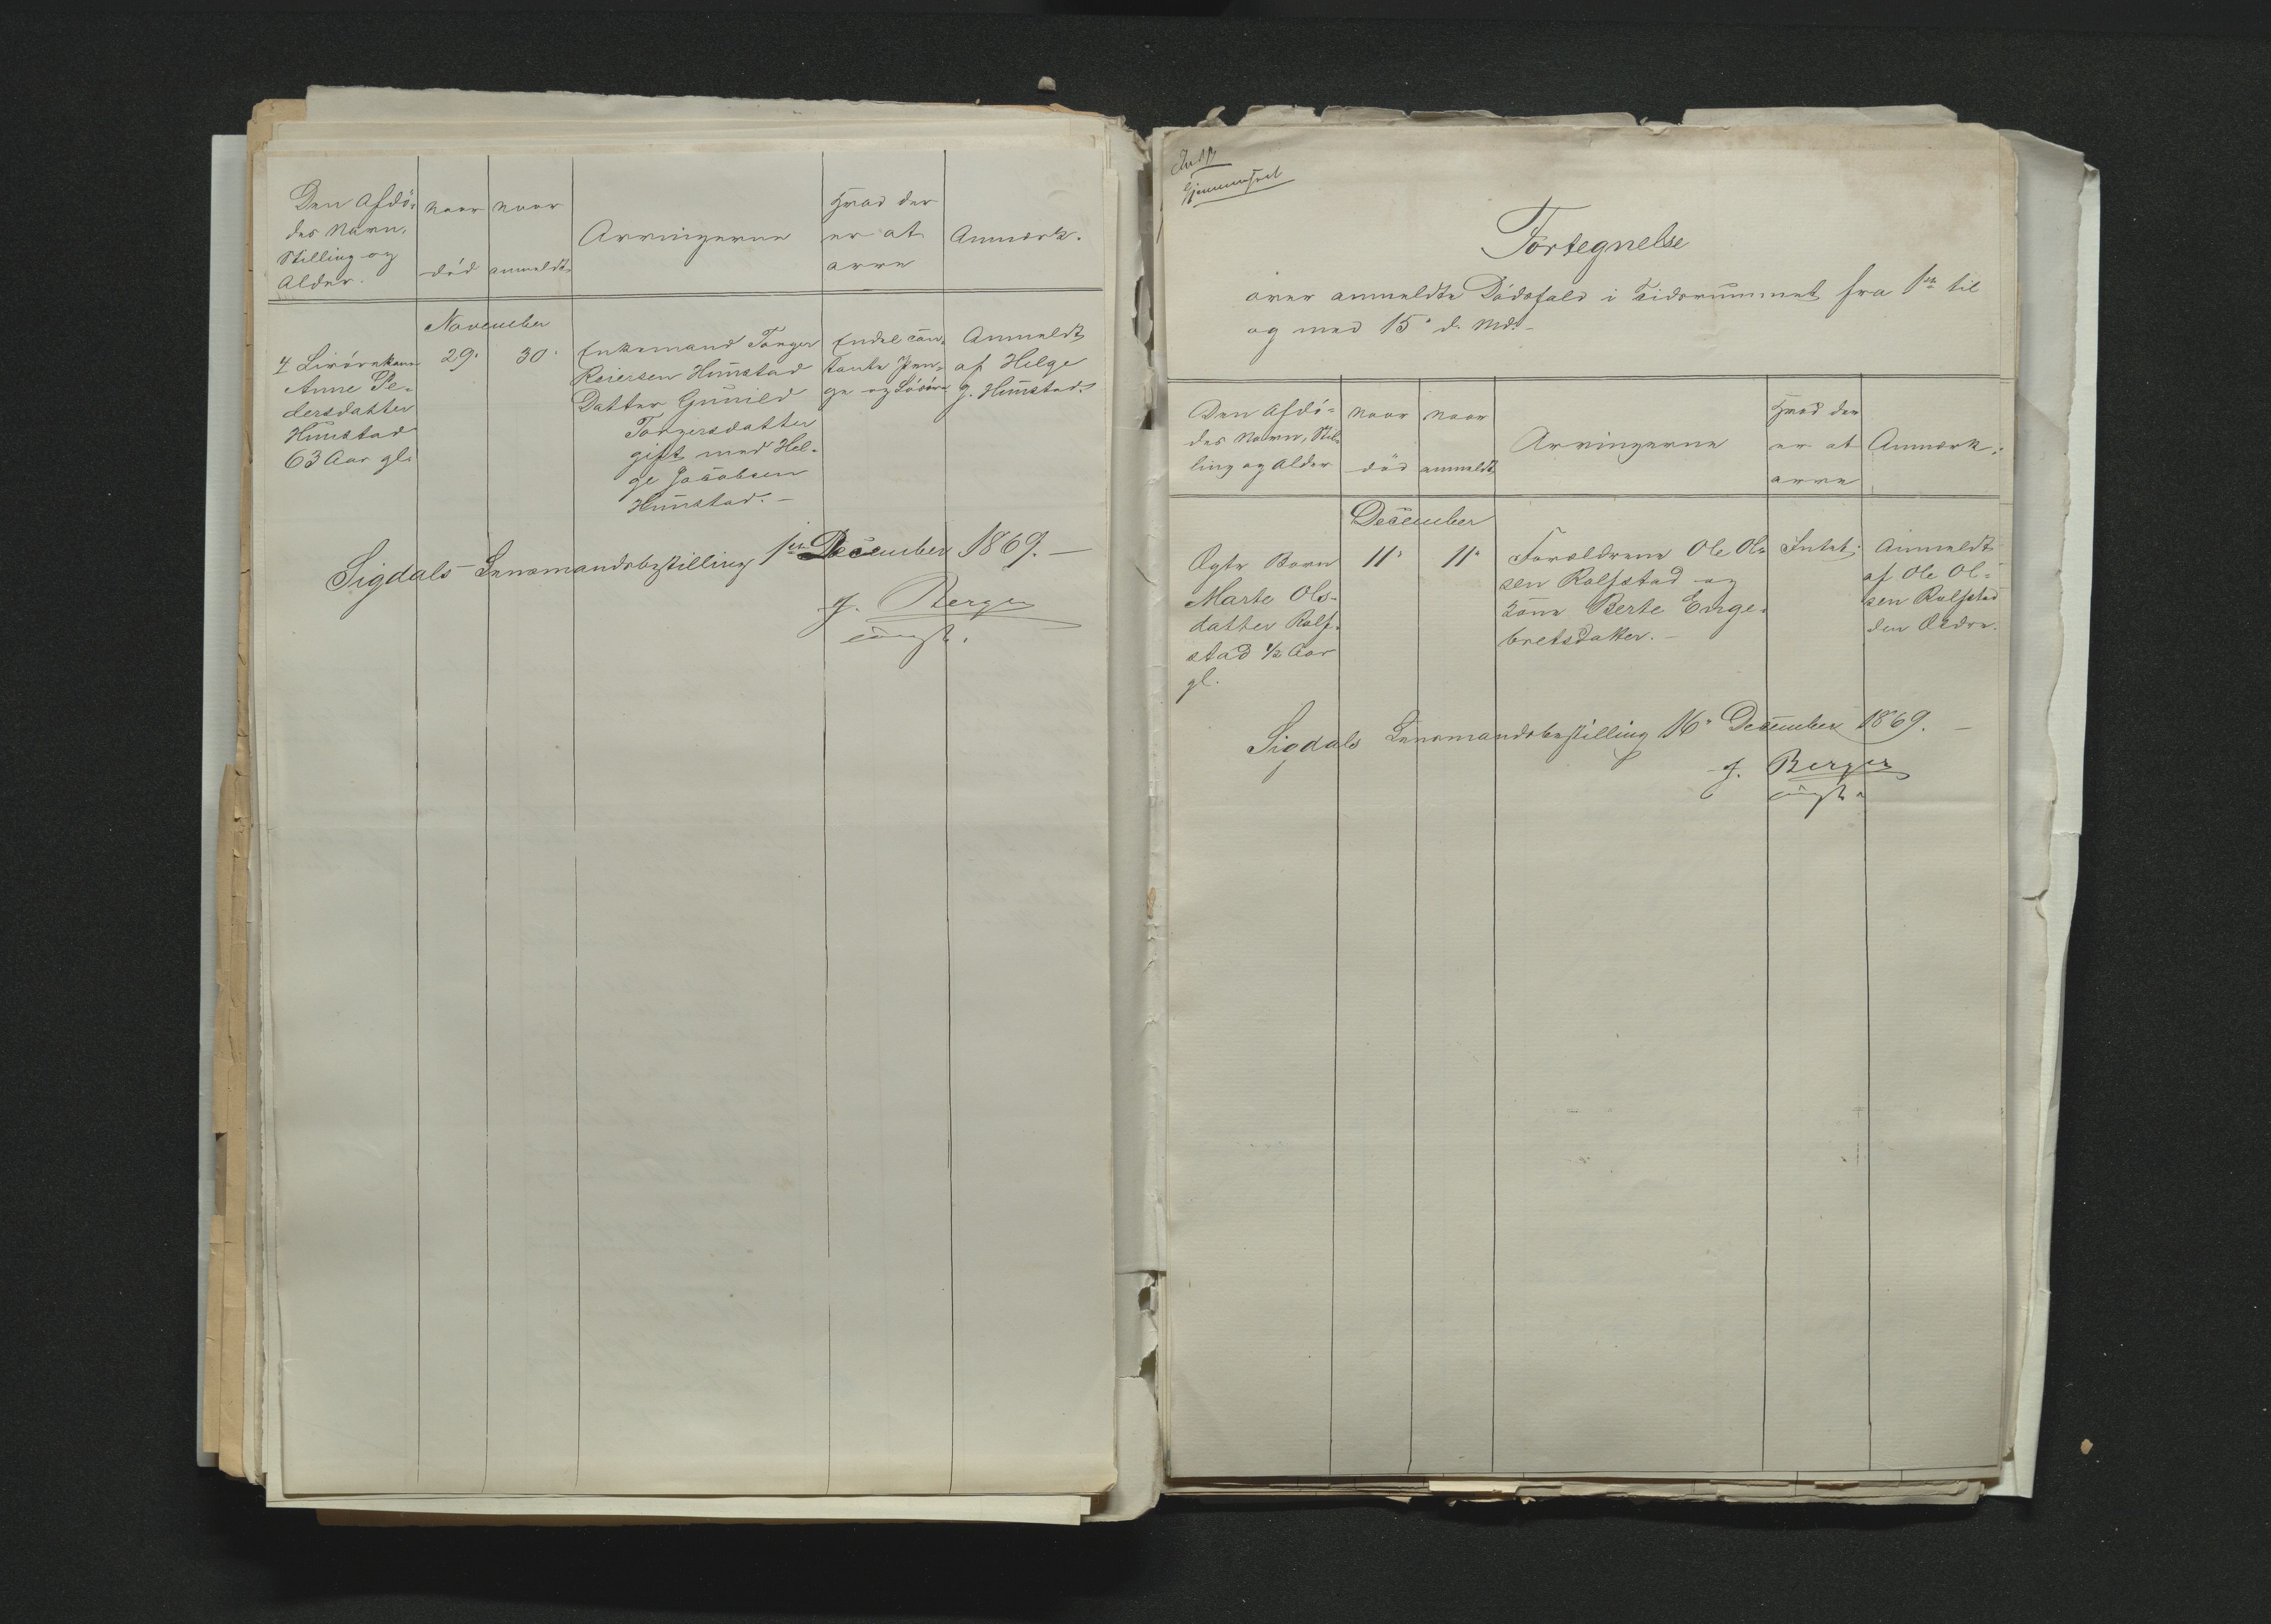 Den Afdö-
des Navn,
Stilling og
Alder.
naar
död
naar
anmeldt
Arvingerne
Hvad der
er at
arve
Anmærk.
November
4 Livörekone
Anne Pe-
dersdatter
Hunstad
63 Aar gl.
29.
30.
Enkemand Torger
Reiersen Hunstad
Datter Gunild
Torgersdatter
gift med Hel-
ge Jacobsen
Hunstad. –
Endel con-
tante Pen-
ge og Lösöre
Anmeldt
af Helge
J. Hunstad.
Sigdals Lensmandsbestilling 1ste December 1869. –
J. Berger
const.
Indf
Gjennemseet
Fortegnelse
over anmeldte Dödsfald i Tidsrummet fra 1ste til
og med 15. d. Md. –
Den Afdö-
des Navn, Stil-
ling og Alder
naar
död
naar
anmeldt
Arvingerne
Hvad der
er at
arve
Anmærk.
December
Ægte Barn
Marte Ols-
datter Rolf-
stad ½ Aar
gl.
11.
11.
Forældrene Ole Ol-
sen Rolfstad og
Kone Berte Enge-
bretsdatter. –
Intet.
Anmeldt
af Ole Ol-
sen Rolfstad
den Ældre.
Sigdals Lensmandsbestilling 16. December 1869. –
J. Berger
const.